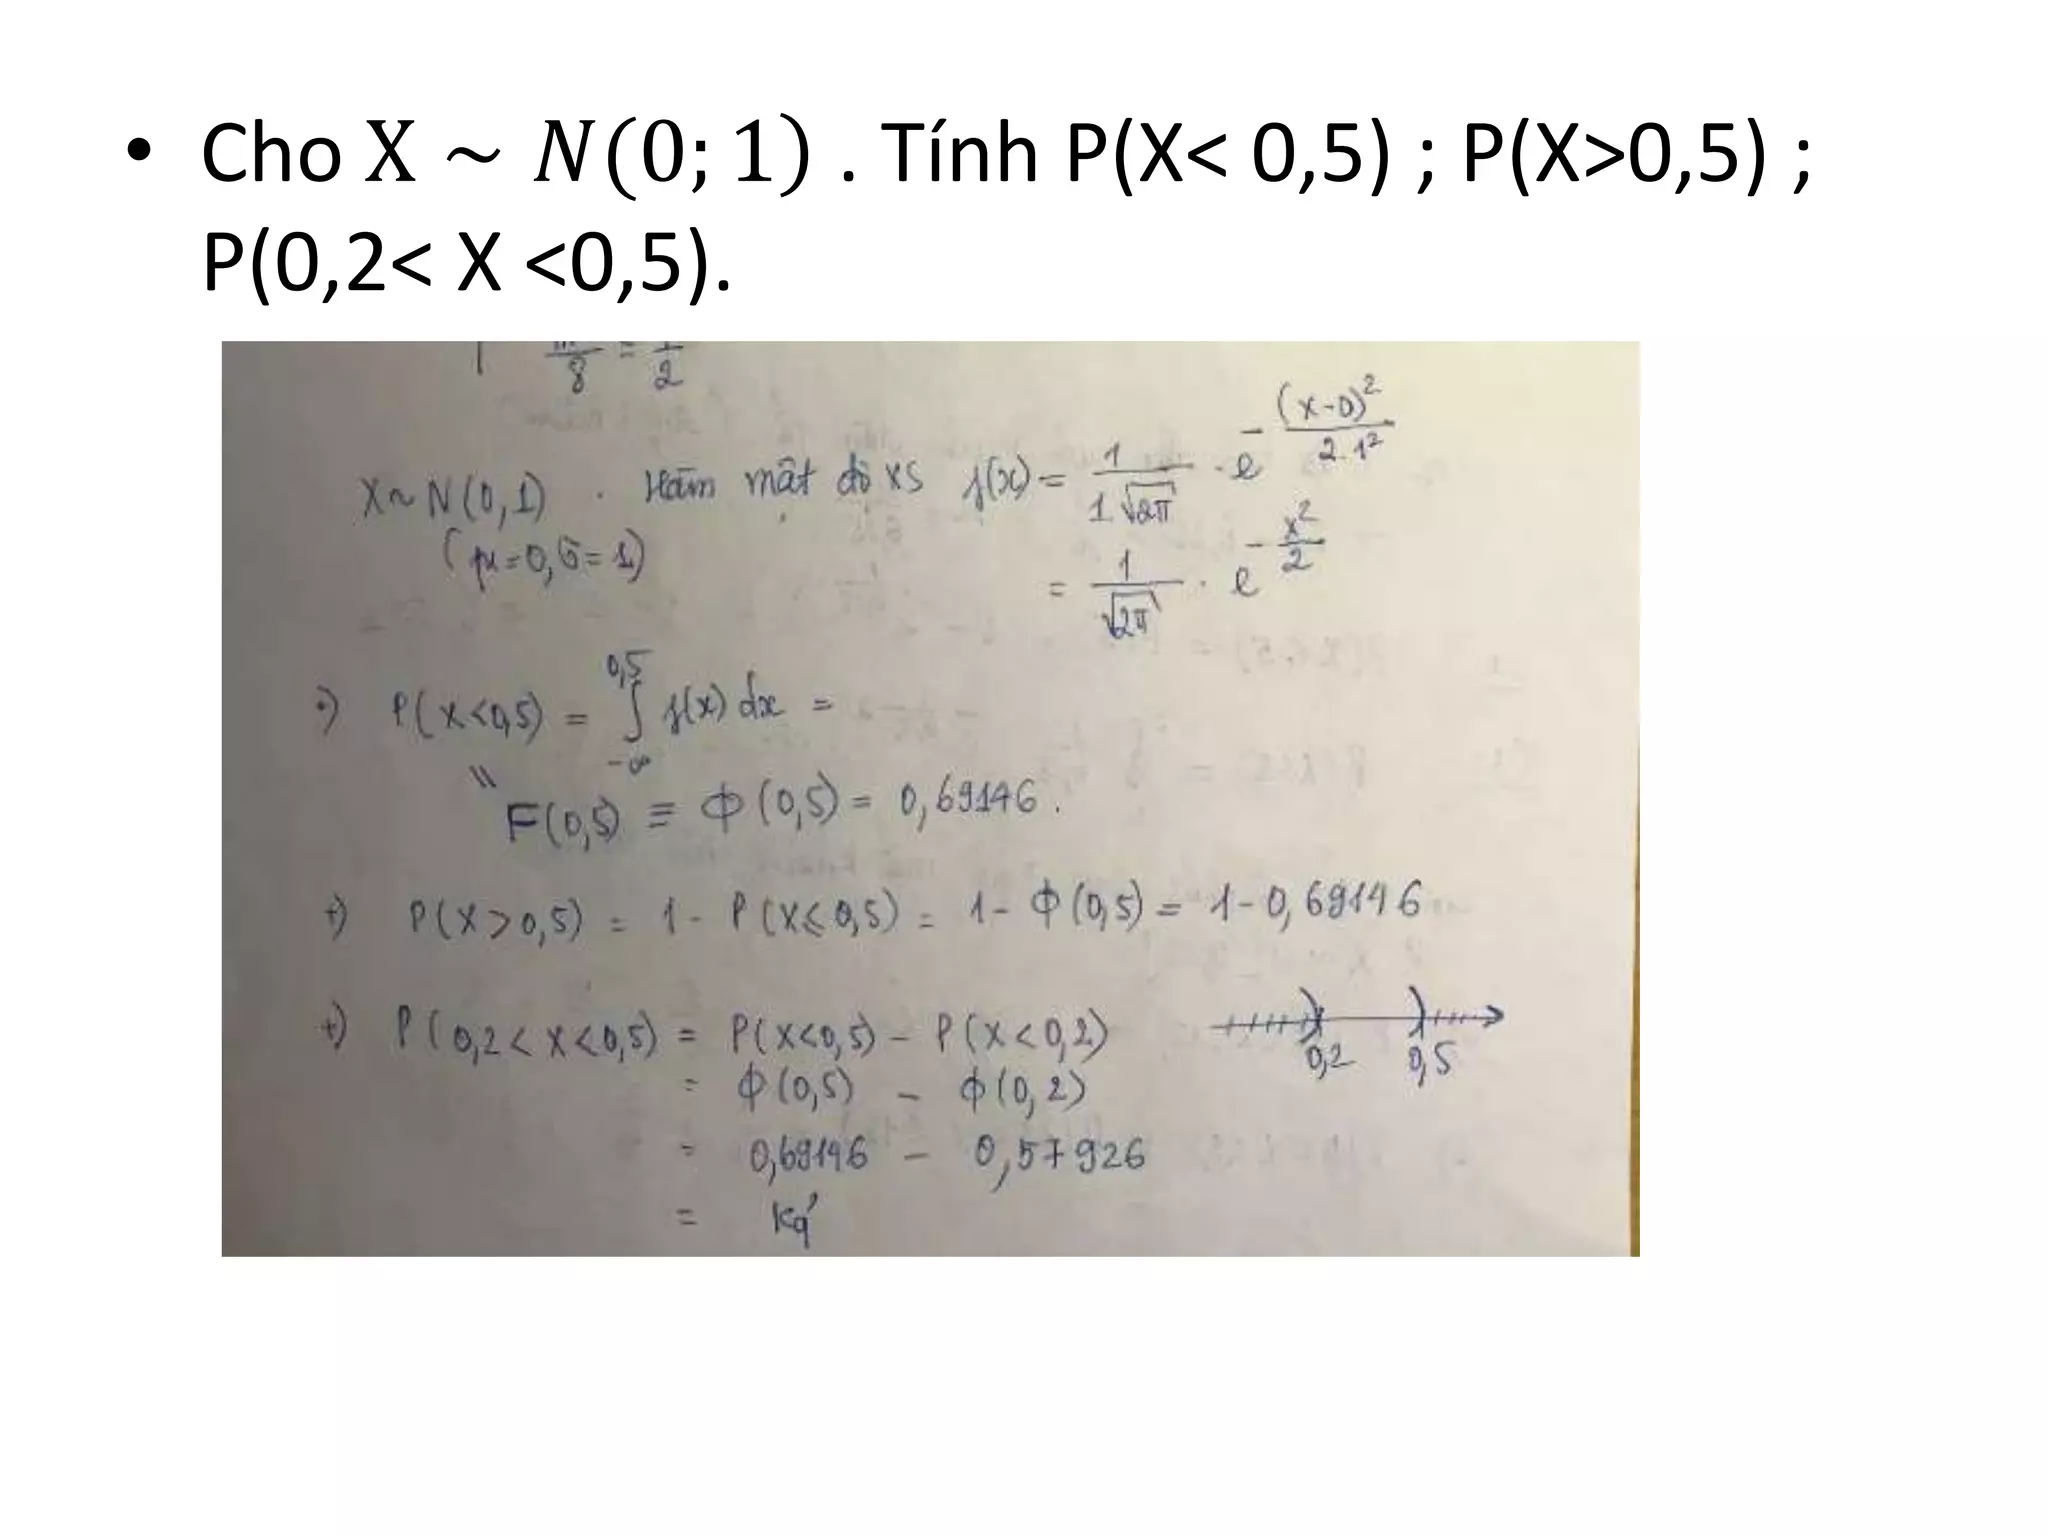 • Cho X ~ N(0; 1) . Tính P(X< 0,5) ; P(X>0,5) ;
P(0,2< X <0,5).
8 = 2
X ~ N(0,1) . Hàm mật độ XS f(x) = 1/(1.√2π) . e^(-(x-0)²/(2.1²))
(μ=0, σ=1)
= 1/√2π . e^(-x²/2)
•) P(X<0,5) = ∫_{-∞}^{0,5} f(x) dx =
= F(0,5) ≡ Φ(0,5) = 0,69146.
+) P(X>0,5) = 1 - P(X⩽0,5) = 1 - Φ(0,5) = 1 - 0,69146
+) P(0,2<X<0,5) = P(X<0,5) - P(X<0,2)
0,2 0,5
= Φ(0,5) - Φ(0,2)
= 0,69146 - 0,57926
= Kq'